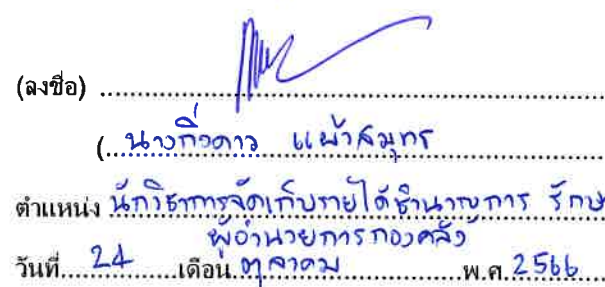 (ลงชื่อ)
(นางกิ่งดาว แผ้วสมุทร
ตำแหน่ง นักวิชาการจัดเก็บรายได้ชำนาญการ รักษ
ผู้อำนวยการกองคลัง
วันที่ 24 เดือน ตุลาคม พ.ศ. 2566